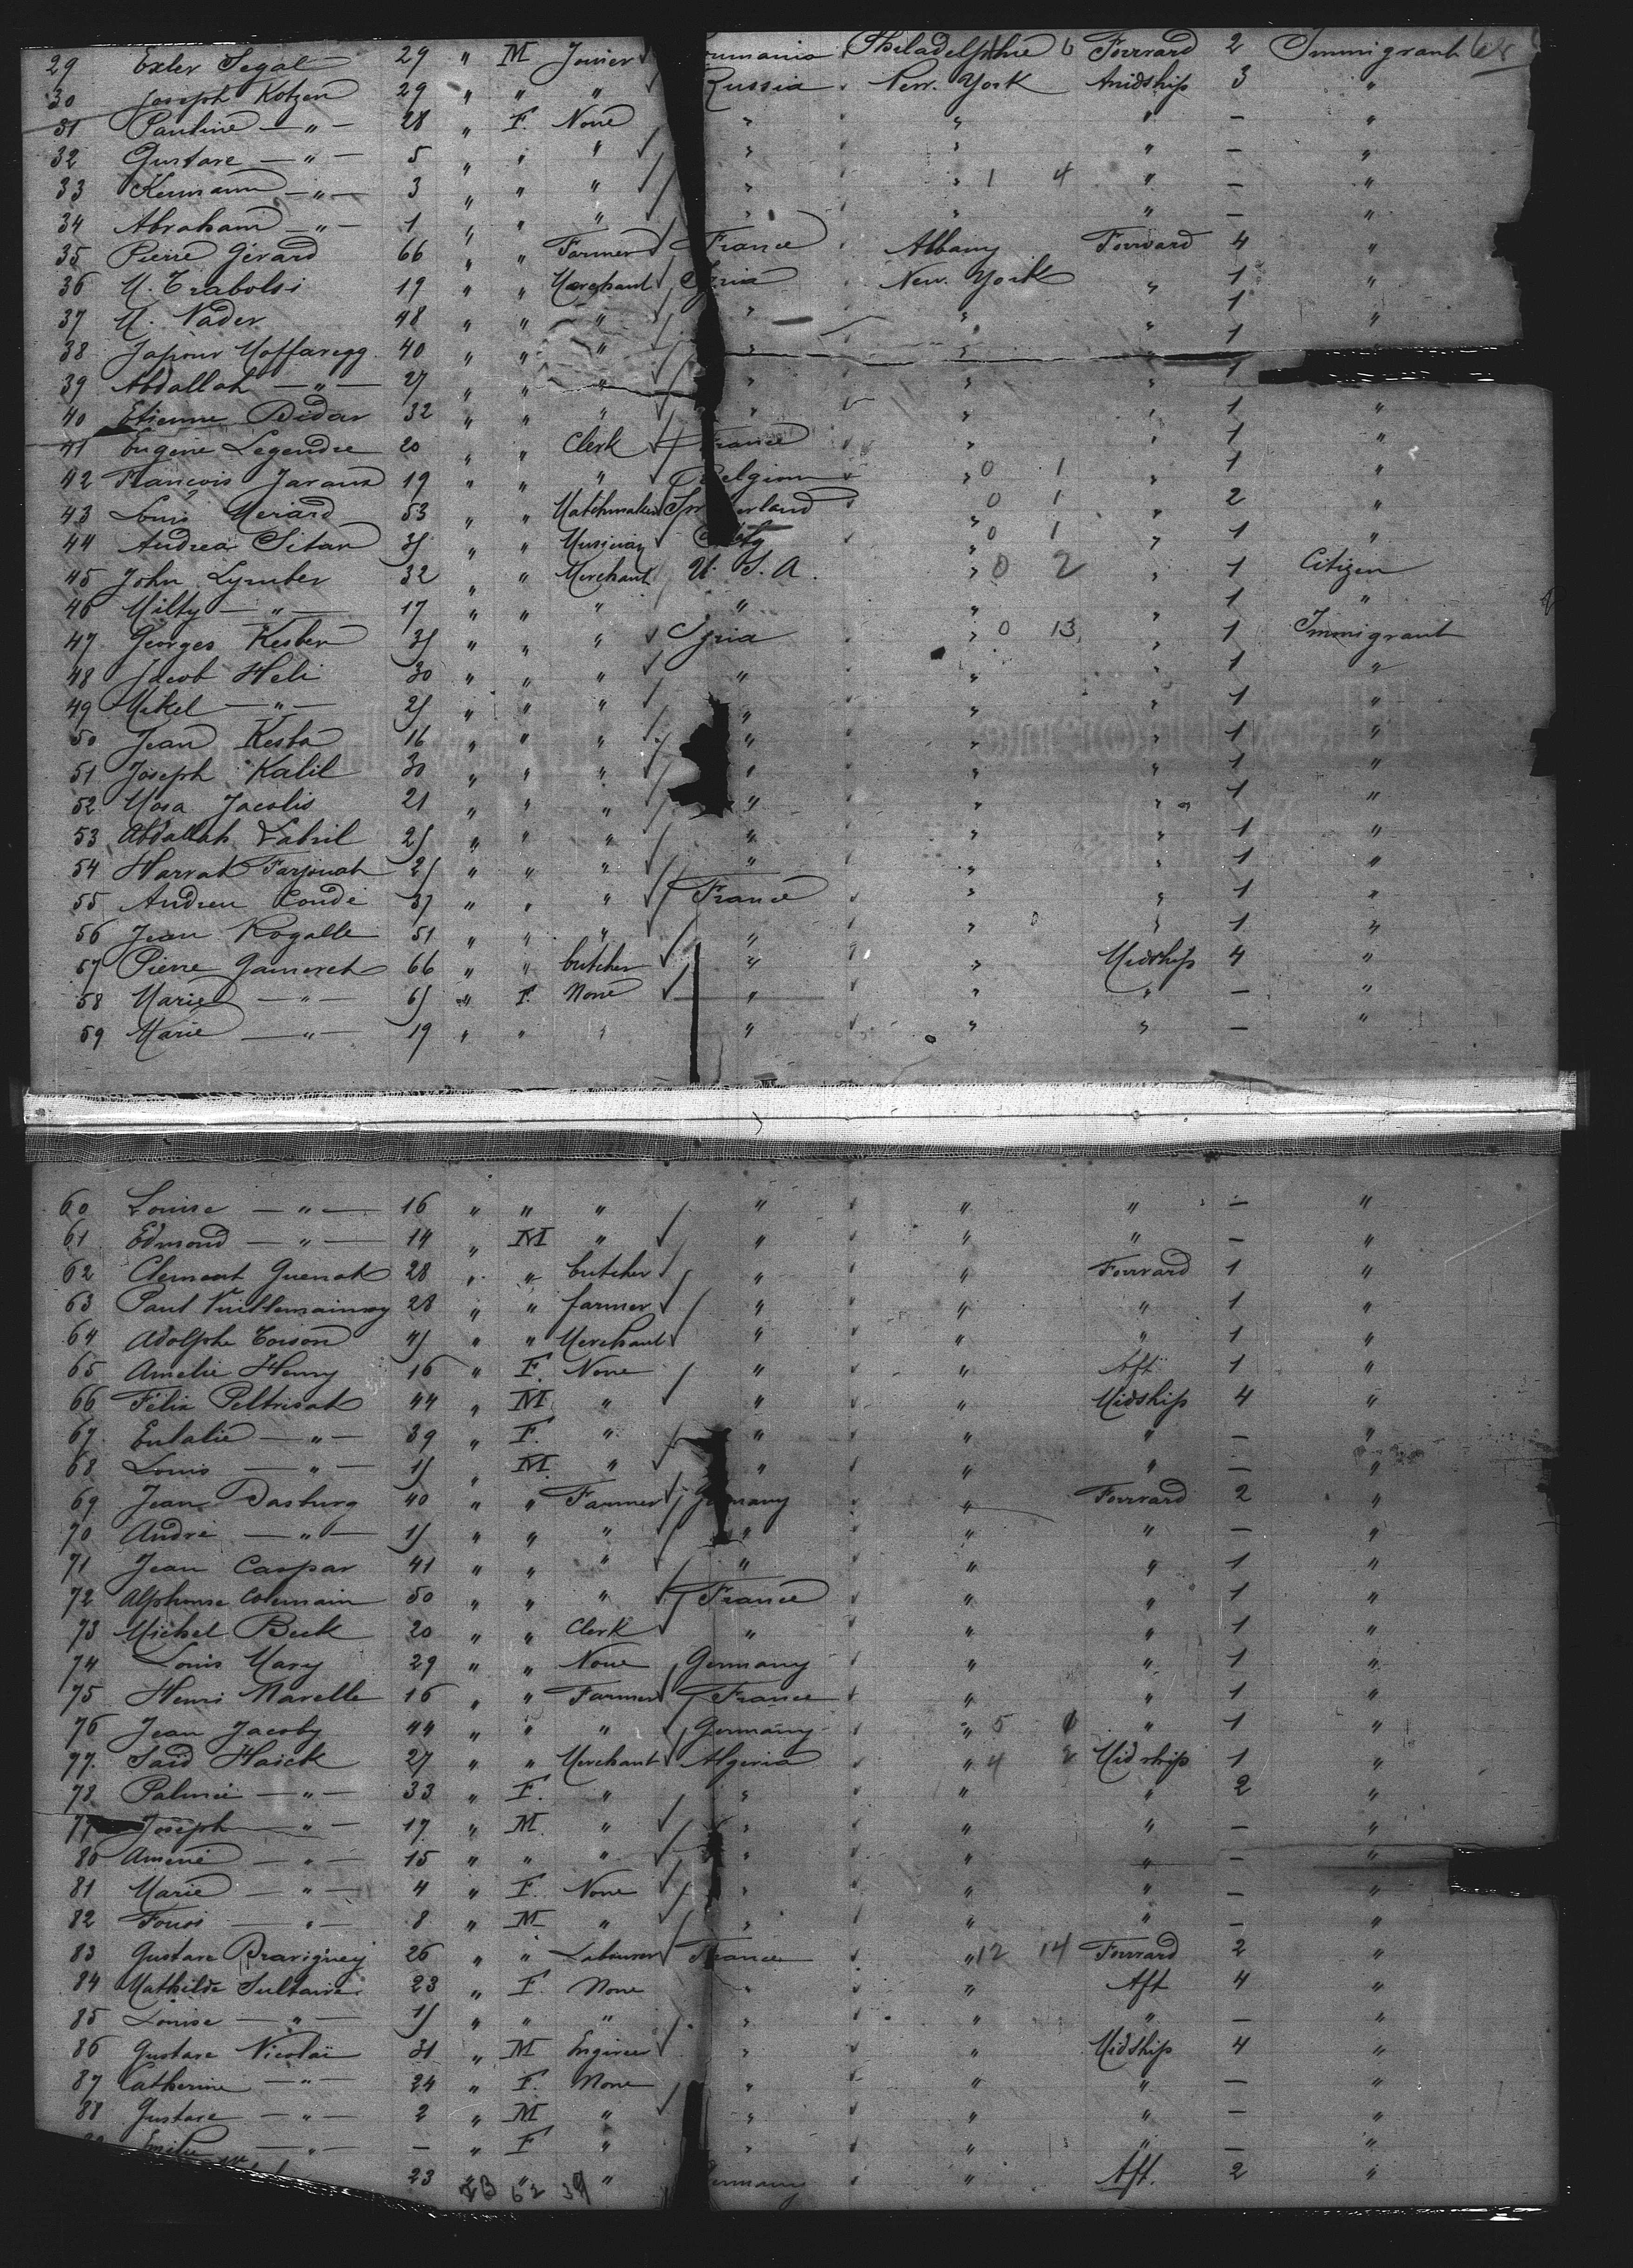 29 Exler Segal 29 " M Joiner rumania Philadelphie 6 Forward 2 Immigrant
30 Joseph Kotzen 29 " " " Russia New. York Amidship 3 "
31 Pauline — " — 28 " F. None " " " — "
32 Gustave — " — 5 " " " " " " — "
33 — " — 3 " " " " " 1 4 " — "
34 Abraham — " — 1 " " " " " " — "
35 Pierre Gérard 66 " " Farmer France Albany Forward 4 "
36 M. Trabolsi 19 " " Merchant Syria New. York " 1 "
37 M. Nader 48 " " " " " " 1 "
38 Moffaregg 40 " " " " " " 1
39 Abdallah — " — 27 " " " " " " 1
40 Etienne Bidar 32 " " " " " " 1 "
41 Eugène Legendre 20 " " Clerk France " " 1 "
42 François 19 " " " Belgium " 0 1 " 1 "
43 Louis Merard 53 " " Watchmaker erland " 0 1 " 2 "
44 Andrea Sitan " " " 0 1 " 1 "
45 John Lymber 32 " " Merchant U. S. A. " 0 2 " 1 Citizen
46 Milty — " — 17 " " " " " " 1 "
47 Georges 35 " " " Syria " 0 13 " 1 Immigrant
48 Jacob Heli 30 " " " " " " 1 "
49 Mikel — " — 25 " " " " " " 1 "
50 Jean Kesba 16 " " " " " " 1 "
51 Joseph Kalil 30 " " " " " " 1 "
52 Mosa Jacolis 21 " " " " " " 1 "
53 Abdallah 25 " " " " " " 1 "
54 Harrak Farjouah 25 " " " " " " 1 "
55 Andreu Condé " " " France " " 1 "
56 Jean Rogalle 51 " " " " " " 1 "
57 Pierre 66 " " butcher " " Midship 4 "
58 Marie — " — 65 " F. None " " " — "
59 Marie — " — 19 " " " " " " — "
60 Louise — " — 16 " " " " " " — "
61 Edmond — " — 14 " M " " " " — "
62 Clement Guenat 28 " " butcher " " Forward 1 "
63 Paul 28 " " farmer " " " 1 "
64 Adolphe Toison 45 " " Merchant " " " 1 "
65 Amelie Henry 16 " F. None " " Aft 1 "
66 Félix Peltrisat 44 " M " " " Midship 4 "
67 Eulalie — " — 39 " F. " " " " — "
68 Louis — " — 15 " M. " " " " — "
69 Jean Dasburg 40 " " Farmer Germany " Forward 2 "
70 André — " — 15 " " " " " " — "
71 Jean Caspar 41 " " " " " " 1 "
72 Alphonse Colemain 50 " " " France " " 1 "
73 Michel Beck 20 " " Clerk " " " 1 "
74 Louis Mary 29 " " None Germany " " 1 "
75 Henri Navelle 16 " " Farmer France " " 1 "
76 Jean Jacoby 44 " " " Germany " 5 " 1 "
77. Said Haick 27 " " Merchant Algeria " 4 Midship 1 "
78 Palmié — " — 33 " F. " " " " 2 "
79 Joseph — " — 17 " M. " " " " — "
80 Amené — " — 15 " " " " " " — "
81 Marie — " — 4 " F. None " " " — "
82 — " — 8 " M " " " " — "
83 Gustave Bravigney 26 " " Labourer France " 12 14 Forward 2 "
84 Mathilde Sultaire 23 " F. None " " Aft 4 "
85 Louise — " — 15 " " " " " " — "
86 Gustave Nicolaï 31 " M Engineer " " Midship 4 "
87 Catherine — " — 24 " F. None " " " — "
88 Gustave — " — 2 " M " " " " — "
Emilie — " — — " F " " " " — "
23 " " " ermany " Aft. 2 "